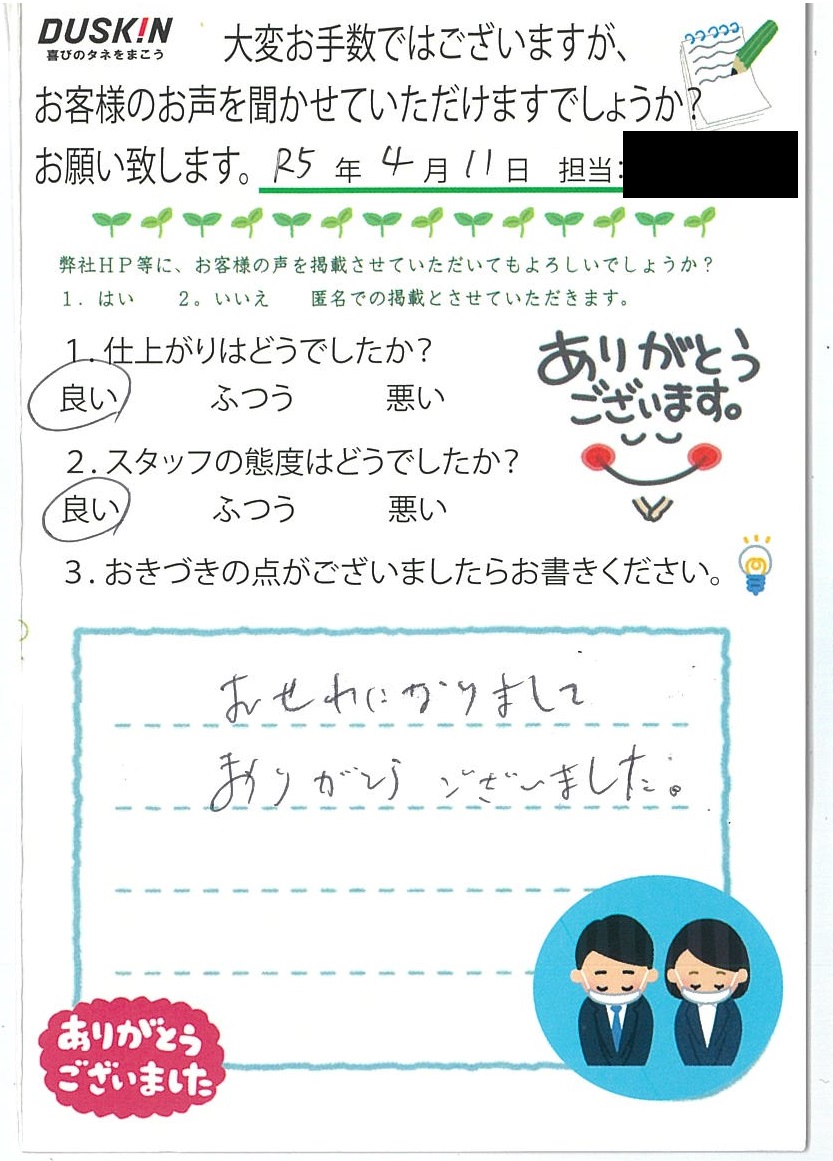 DUSK!N
喜びのタネをまこう
大変お手数ではございますが、
お客様のお声を聞かせていただけますでしょうか?
お願い致します。 R5 年 4 月 11 日 担当:
弊社HP等に、お客様の声を掲載させていただいてもよろしいでしょうか?
1. はい 2。いいえ 匿名での掲載とさせていただきます。
1.仕上がりはどうでしたか?
良い ふつう 悪い
ありがとう
ございます。
2.スタッフの態度はどうでしたか?
良い ふつう 悪い
3.おきづきの点がございましたらお書きください。
おせわになりまして
ありがとう ございました。
ありがとう
ございました